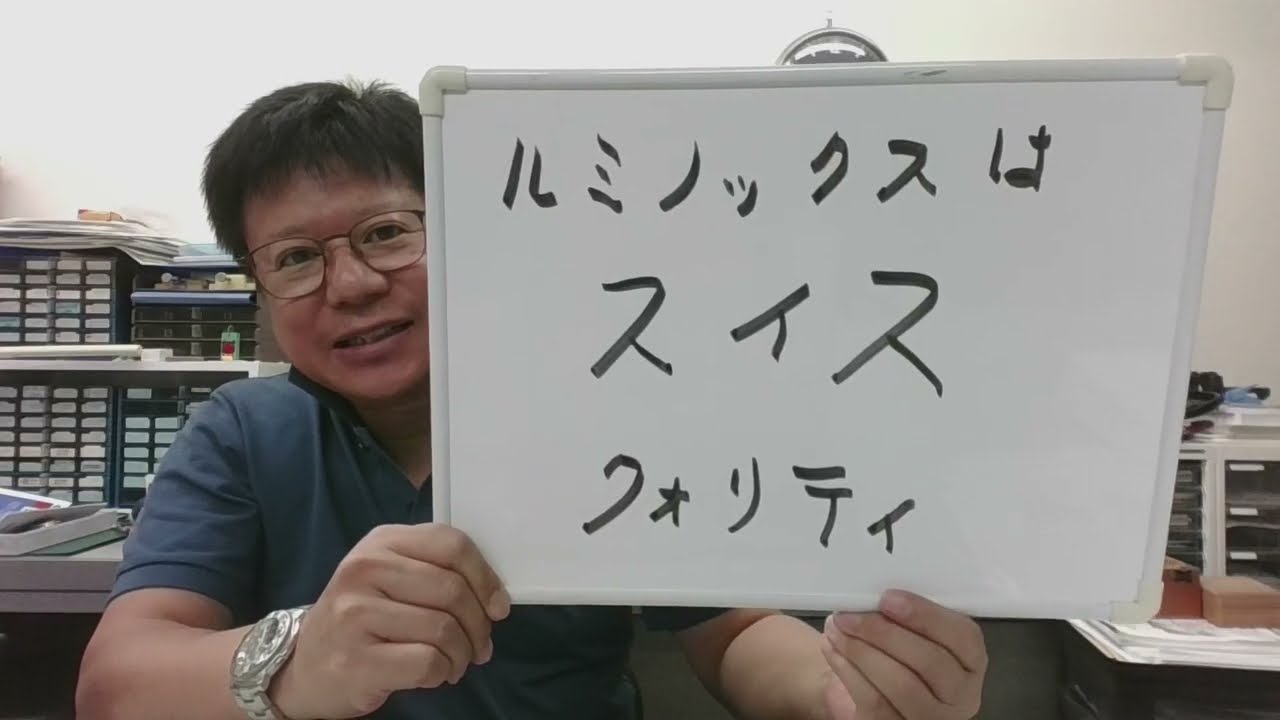 ルミノックスは
スイス
クォリティ